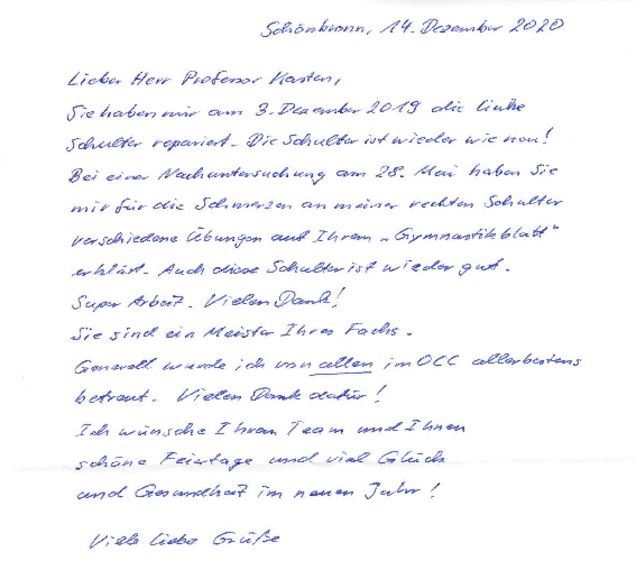 Schönbrunn, 14. Dezember 2020
Lieber Herr Professor Kasten,
Sie haben mir am 3. Dezember 2019 die linke
Schulter repariert. Die Schulter ist wieder wie neu!
Bei einer Nachuntersuchung am 28. Mai haben Sie
mir für die Schmerzen an meiner rechten Schulter
verschiedene Übungen auf Ihrem „Gymnastikblatt"
erklärt. Auch diese Schulter ist wieder gut.
Super Arbeit. Vielen Dank!
Sie sind ein Meister Ihres Fachs.
Generell wurde ich von allen im OCC allerbestens
betreut. Vielen Dank dafür!
Ich wünsche Ihrem Team und Ihnen
schöne Feiertage und viel Glück
und Gesundheit im neuen Jahr!
Viele liebe Grüße